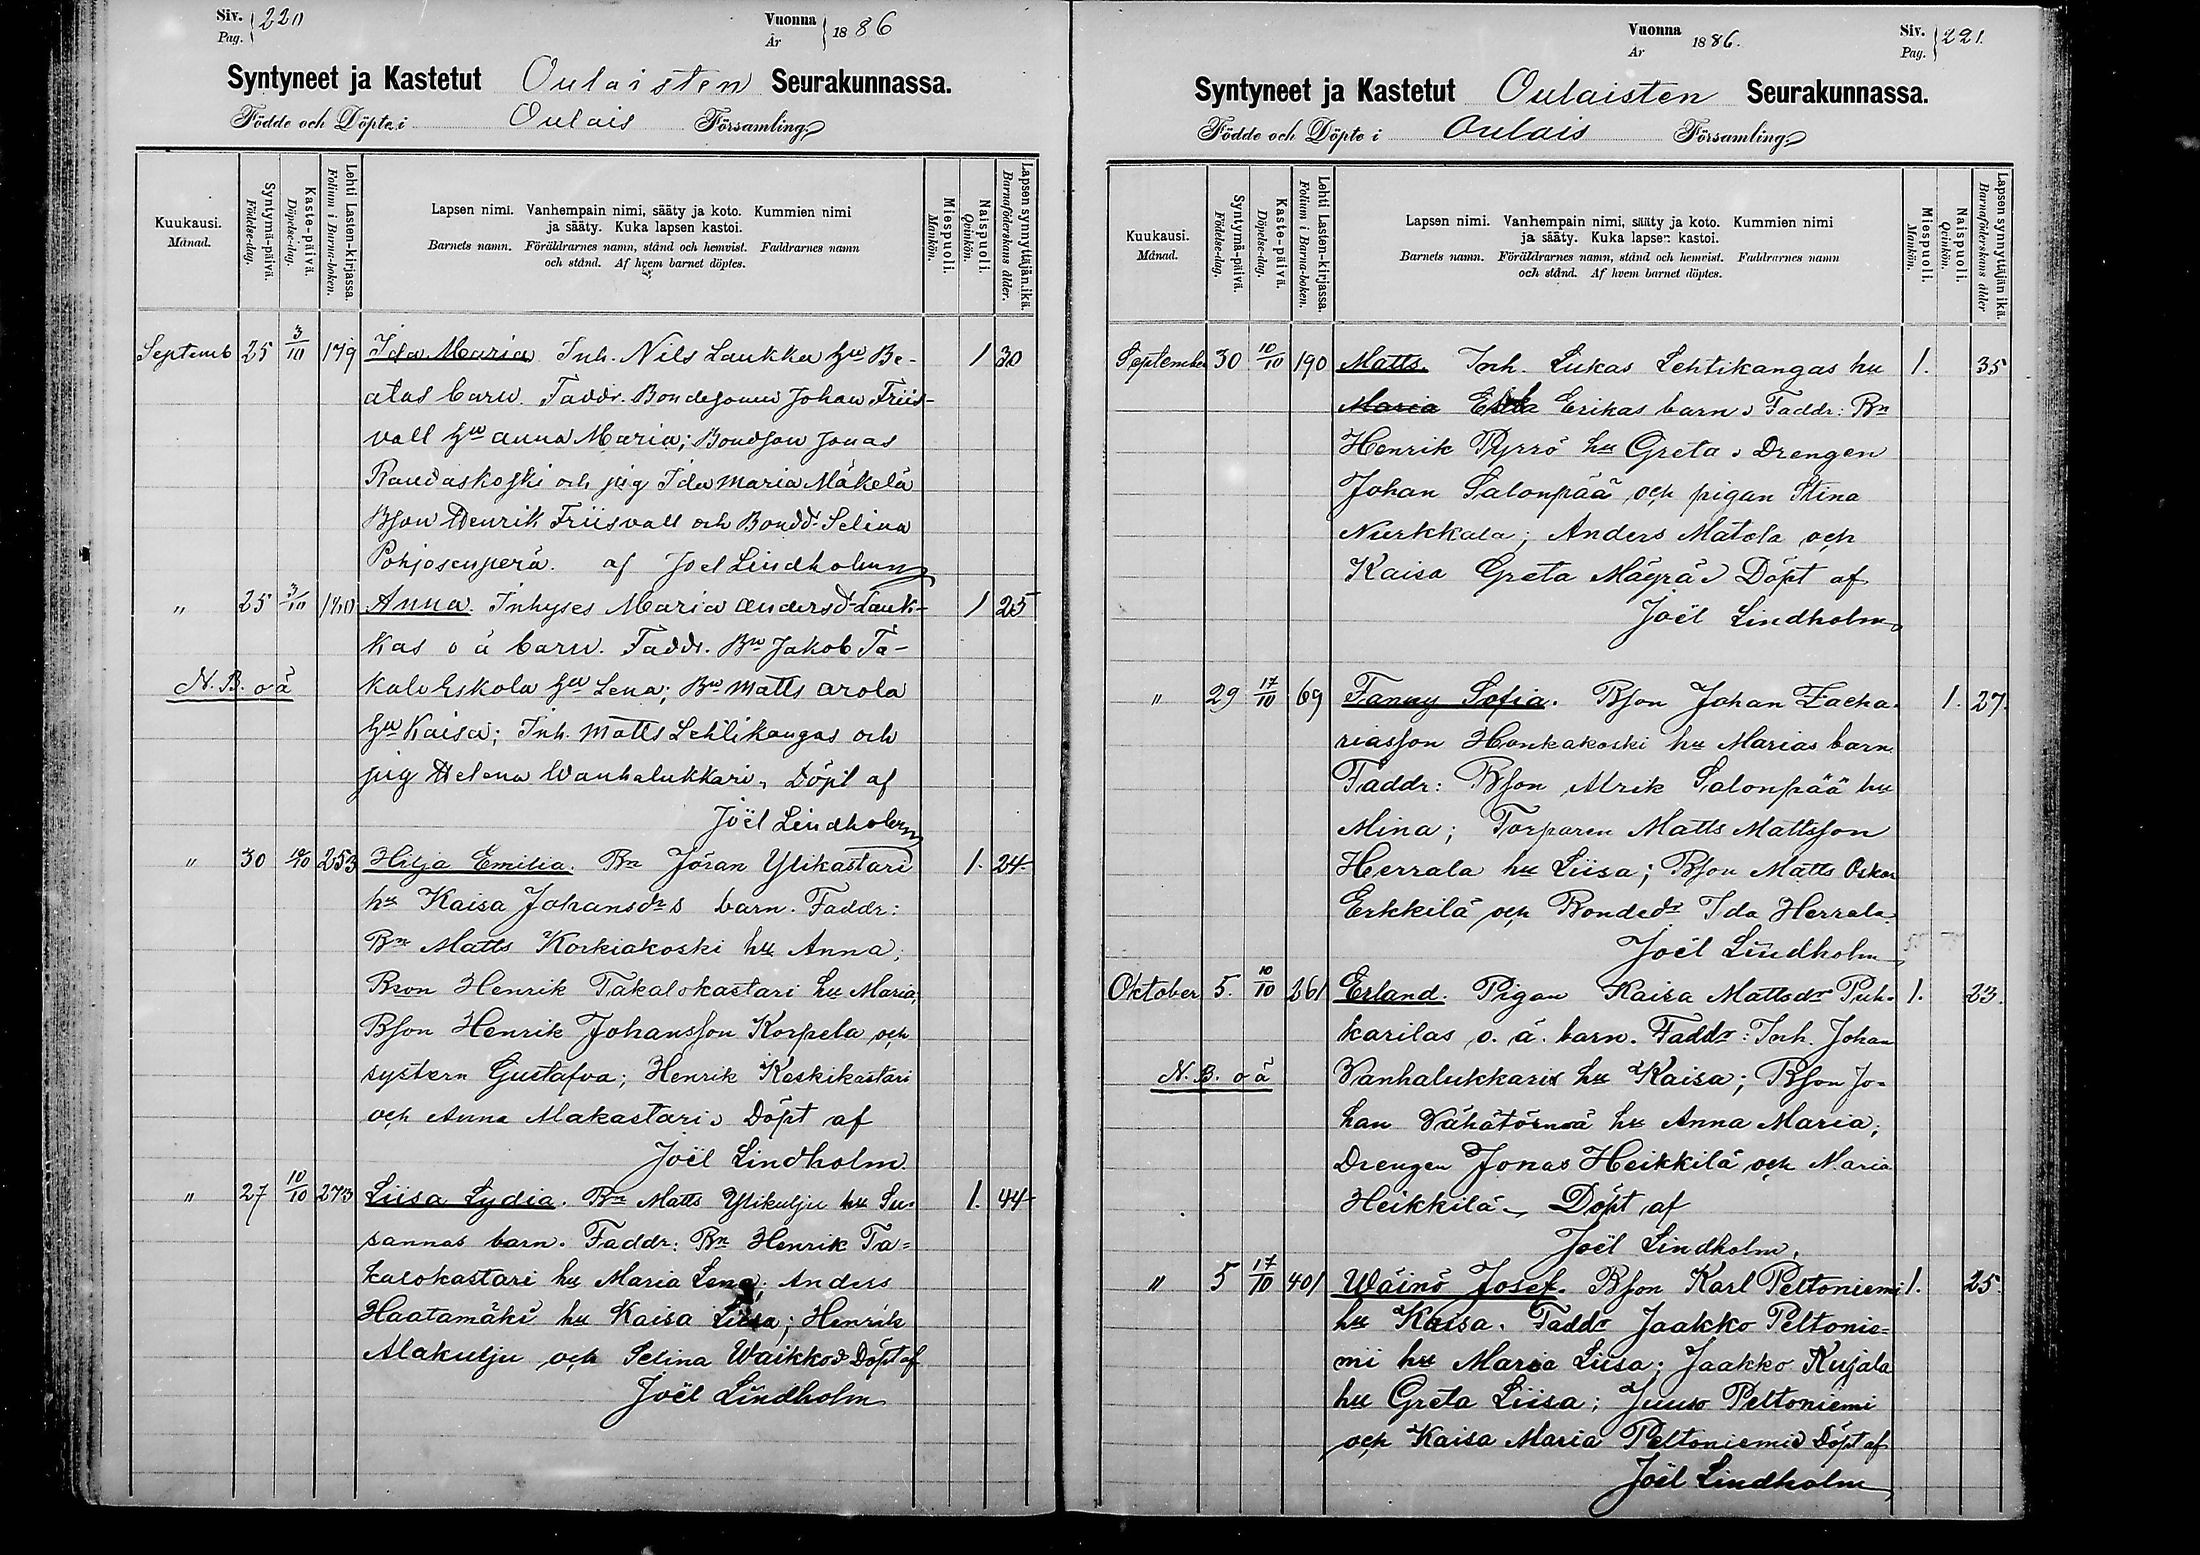 Siv. Pag. 220
Vuonna År 1886
Syntyneet ja Kastetut Oulaisten Seurakunnassa.
Födde och Döpte i Oulais Församling.
Kuukausi. Månad.
Syntymä-päivä. Födelse-dag.
Kaste-päivä. Döpelse-dag.
Lehti Lasten-kirjassa. Folium i Barna-boken.
Lapsen nimi. Vanhempain nimi, sääty ja koto. Kummien nimi
ja sääty. Kuka lapsen kastoi.
Barnets namn. Föräldrarnes namn, stånd och hemvist. Faddrarnes namn
och stånd. Af hvem barnet döptes.
Miespuoli. Mankön.
Naispuoli. Qvinkön.
Lapsen synnyttäjän ikä. Barnaföderskans ålder.
Septemb 25 3/10 179 Ida Maria Inh. Nils Laukka hu Be- 1 30
atas barn. Faddr. Bondesonen Johan Friis-
vall hu Anna Maria; Bondson Jonas
Raudaskoski och pig Ida Maria Mäkelä
Bson Henrik Friisvall och Bondd. Selina
Pohjosenperä. af Joel Lindholm
" 25 3/10 180 Anna. Inhyses Maria Andersd. Lauk- 1 25
kas o ä barn. Faddr. Bn Jakob Ta-
N. B. o ä kalo Eskola hu Lena; Bn Matts Arola
hu Kaisa; Inh. Matts Lehtikangas och
pig Helena Wanhalukkari, Döpt af
Joël Lindholm
" 30 10/10 253 Hilja Emilia. Bn Jöran Ylikastari 1. 24
hu Kaisa Johansdrs barn. Faddr:
Bn Matts Korkiakoski hu Anna;
Bson Henrik Takalokastari hu Maria;
Bson Henrik Johansson Korpela och
systern Gustafva; Henrik Keskikastari
och Anna Alakastari. Döpt af
Joël Lindholm
" 27 10/10 273 Liisa Lydia. Bn Matts Ylikulju hu Su- 1. 44
sannas barn. Faddr: Bn Henrik Ta-
kalokastari hu Maria Lena; Anders
Haatamäki hu Kaisa Liisa; Henrik
Alakulju och Selina Waikko. Döpt af
Joël Lindholm
Vuonna År 1886.
Siv. Pag. 221.
Syntyneet ja Kastetut Oulaisten Seurakunnassa.
Födde och Döpte i Oulais Församling.
Kuukausi. Månad.
Syntymä-päivä. Födelse-dag.
Kaste-päivä. Döpelse-dag.
Lehti Lasten-kirjassa. Folium i Barna-boken.
Lapsen nimi. Vanhempain nimi, sääty ja koto. Kummien nimi
ja sääty. Kuka lapsen kastoi.
Barnets namn. Föräldrarnes namn, stånd och hemvist. Faddrarnes namn
och stånd. Af hvem barnet döptes.
Miespuoli. Mankön.
Naispuoli. Qvinkön.
Lapsen synnyttäjän ikä. Barnaföderskans ålder
September 30 10/10 190 Matts. Inh. Lukas Lehtikangas hu 1. 35
Maria Erikas barn. Faddr: Bn
Henrik Pyrrö hu Greta. Drengen
Johan Salonpää och pigan Stina
Nurkkala; Anders Matola och
Kaisa Greta Mäyrä. Döpt af
Joël Lindholm
" 29 17/10 69 Fanny Sofia. Bson Johan Zacha- 1. 27.
riasson Honkakoski hu Marias barn.
Faddr: Bson Alrik Salonpää hu
Mina; Torparen Matts Mattsson
Herrala hu Liisa; Bson Matts Oskar
Erkkilä och Bondedr Ida Herrala.
Joël Lindholm
Oktober 5. 10/10 261 Erland. Pigan Kaisa Mattsdr Puh- 1. 23.
karilas o. ä. barn. Faddr: Inh. Johan
N. B. o ä Vanhalukkaris hu Kaisa; Bson Jo-
han Vähätörmä hu Anna Maria;
Drengen Jonas Heikkilä och Maria
Heikkilä. Döpt af
Joël Lindholm.
" 5 17/10 401 Wäinö Josef. Bson Karl Peltoniemi 1. 25
hu Kaisa. Faddr Jaakko Peltonie-
mi hu Maria Liisa; Jaakko Kujala
hu Greta Liisa; Juuso Peltoniemi
och Kaisa Maria Peltoniemi. Döpt af
Joël Lindholm